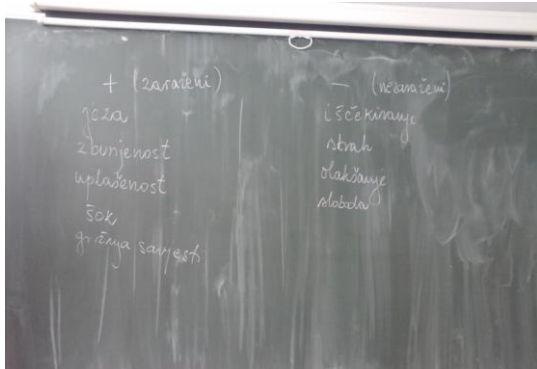 + (zaraženi)
jeza
zbunjenost
uplašenost
šok
grižnja savjesti
- (nezaraženi)
iščekivanje
strah
olakšanje
sloboda